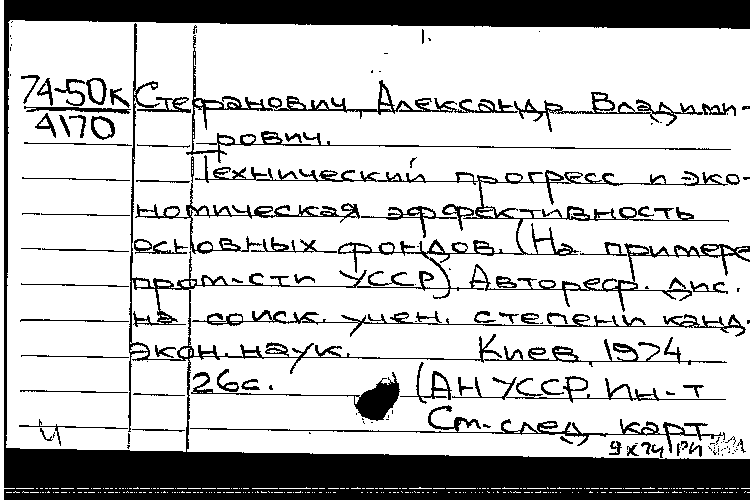 1.
74-50к Стефанович, Александр Владими-
4170 рович.
Технический прогресс и эко-
номическая эффективность
основных фондов. (На примере
пром-сти УССР). Автореф. дис.
на соиск. учен. степени канд.
экон. наук. Киев, 1974.
26с. (АН УССР. Ин-т
См. след. карт.